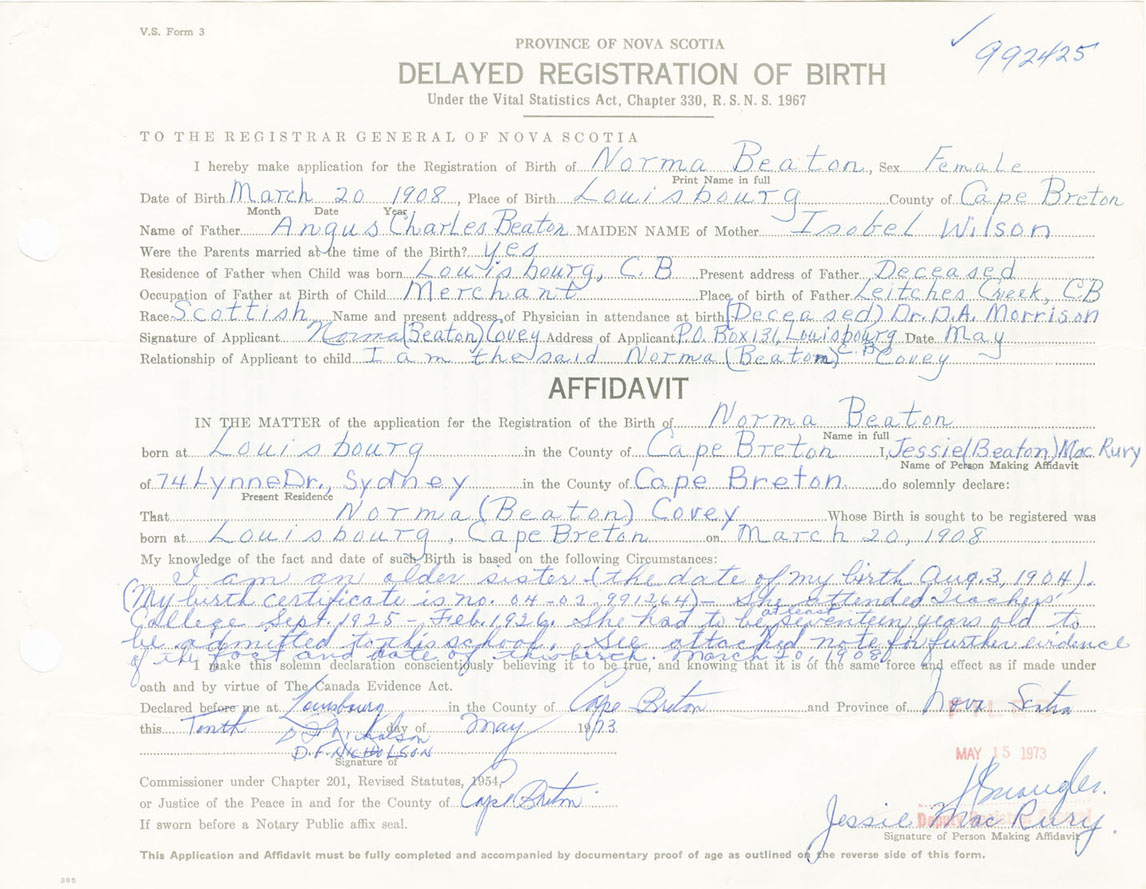 V.S. Form 3
992425
PROVINCE OF NOVA SCOTIA
DELAYED REGISTRATION OF BIRTH
Under the Vital Statistics Act, Chapter 330, R. S. N. S. 1967
TO THE REGISTRAR GENERAL OF NOVA SCOTIA
I hereby make application for the Registration of Birth of Norma Beaton, Sex Female
Print Name in full
Date of Birth March 20 1908, Place of Birth Louisbourg County of Cape Breton
Month Date Year
Name of Father Angus Charles Beaton MAIDEN NAME of Mother Isobel Wilson
Were the Parents married at the time of the Birth? yes
Residence of Father when Child was born Louisbourg, C.B Present address of Father Deceased
Occupation of Father at Birth of Child Merchant Place of birth of Father Leitches Creek, CB
Race Scottish Name and present address of Physician in attendance at birth (Deceased) Dr. D.A. Morrison
Signature of Applicant Norma (Beaton) Covey Address of Applicant P.O. Box 131, Louisbourg C.B Date May
Relationship of Applicant to child I am the said Norma (Beaton) Covey
AFFIDAVIT
IN THE MATTER of the application for the Registration of the Birth of Norma Beaton
Name in full
born at Louisbourg in the County of Cape Breton I, Jessie (Beaton) Mac Rury
Name of Person Making Affidavit
of 74 Lynne Dr., Sydney in the County of Cape Breton do solemnly declare:
Present Residence
That Norma (Beaton) Covey Whose Birth is sought to be registered was
born at Louisbourg, Cape Breton on March 20, 1908
My knowledge of the fact and date of such Birth is based on the following Circumstances:
I am an older sister (the date of my birth Aug. 3, 1904).
(My birth certificate is no. 04-02, 991264) - She attended Teachers'
College Sept. 1925 - Feb. 1926. She had to be at least seventeen years old to
be admitted to this school. See attached note for further evidence
of the fact and date of this birth. March 20, 1908
I make this solemn declaration conscientiously believing it to be true, and knowing that it is of the same force and effect as if made under
oath and by virtue of The Canada Evidence Act.
Declared before me at Louisbourg in the County of Cape Breton and Province of Nova Scotia
this Tenth day of May 1973
D F Nicholson
D. F. NICHOLSON
Signature of
MAY 15 1973
Commissioner under Chapter 201, Revised Statutes, 1954,
or Justice of the Peace in and for the County of Cape Breton
Deputy
Jessie Mac Rury
If sworn before a Notary Public affix seal.
Signature of Person Making Affidavit
This Application and Affidavit must be fully completed and accompanied by documentary proof of age as outlined on the reverse side of this form.